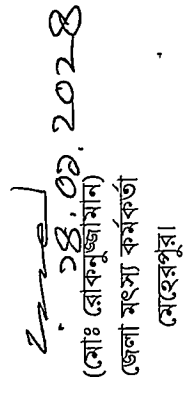 ১৪.০১.২০২৪
(মোঃ রোকনুজ্জামান)
জেলা মৎস্য কর্মকর্তা
মেহেরপুর।